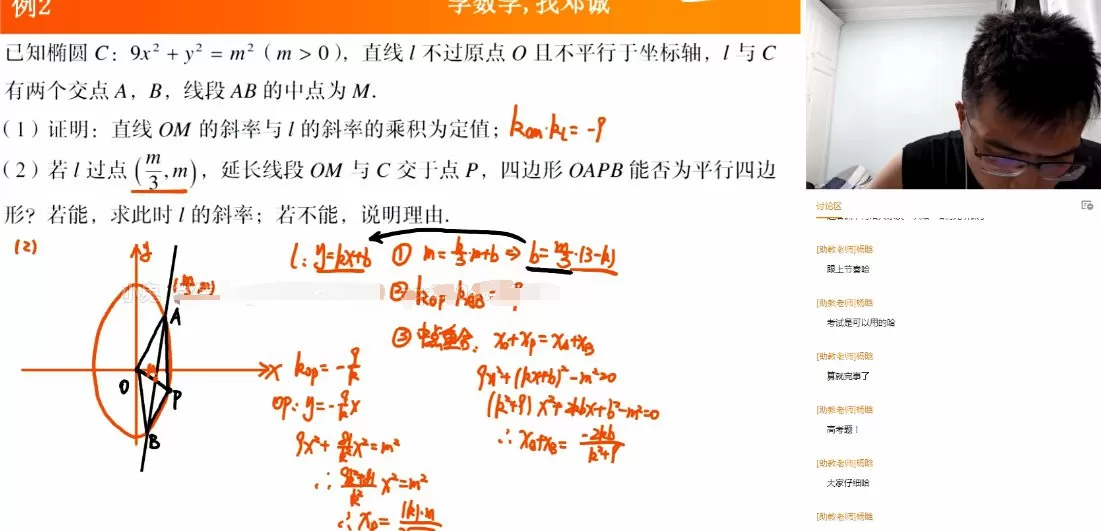 例2
学数学,找邓诚
已知椭圆 C：9x² + y² = m²（m > 0），直线 l 不过原点 O 且不平行于坐标轴，l 与 C
有两个交点 A，B，线段 AB 的中点为 M．
（1）证明：直线 OM 的斜率与 l 的斜率的乘积为定值；
k_OM·k_l = -9
（2）若 l 过点 (m/3, m)，延长线段 OM 与 C 交于点 P，四边形 OAPB 能否为平行四边
形？若能，求此时 l 的斜率；若不能，说明理由．
(2)
y
A
O
x
P
B
l: y=kx+b
① m=k/3·m+b ⇒ b=m/3·(3-k)
② k_OP k_AB = ?
③ 中点重合: x_O+x_P=x_A+x_B
9x²+(kx+b)²-m²=0
(k²+9)x²+2kbx+b²-m²=0
∴ x_A+x_B=-2kb/k²+9
k_OP=-9/k
OP: y=-9/k x
9x²+81/k² x²=m²
∴ 9k²+81/k² x²=m²
讨论区
[助教老师]杨晗
跟上节奏哈
[助教老师]杨晗
考试是可以用的哈
[助教老师]杨晗
算就完事了
[助教老师]杨晗
高考题！
[助教老师]杨晗
大家仔细哈
[助教老师]杨晗